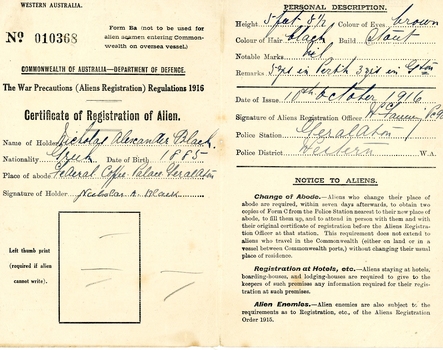 WESTERN AUSTRALIA.
Form Ba (not to be used for
alien seamen entering Common-
wealth on oversea vessel.)
No 010368
COMMONWEALTH OF AUSTRALIA—DEPARTMENT OF DEFENCE.
The War Precautions (Aliens Registration) Regulations 1916
Certificate of Registration of Alien.
Name of Holder Nicholas Alexander Black
Nationality Greek Date of Birth 1885
Place of abode Federal Coffee Palace Geraldton
Signature of Holder Nicholas A. Black
Left thumb print
(required if alien
cannot write).
PERSONAL DESCRIPTION.
Height 5 feet 8½ Colour of Eyes brown
Colour of Hair black Build Stout
Notable Marks nil
Remarks 5 yrs in Perth 3 yrs in Gton
Date of Issue 10th October 1916
Signature of Aliens Registration Officer
Police Station Geraldton
Police District Western W.A.
NOTICE TO ALIENS.
Change of Abode.—Aliens who change their place of
abode are required, within seven days afterwards, to obtain two
copies of Form C from the Police Station nearest to their new place of
abode, to fill them up, and to attend in person with them and with
their original certificate of registration before the Aliens Registra-
tion Officer at that station. This requirement does not extend
to aliens who travel in the Commonwealth (either on land or in a
vessel between Commonwealth ports), without changing their usual
place of residence.
Registration at Hotels, etc.—Aliens staying at hotels,
boarding-houses, and lodging-houses are required to give to the
keepers of such premises any information required for their regis-
tration as such.
Alien Enemies.—Aliens are also subject to the
requirements as to Registration, etc., of the Aliens Registration
Order 1915.